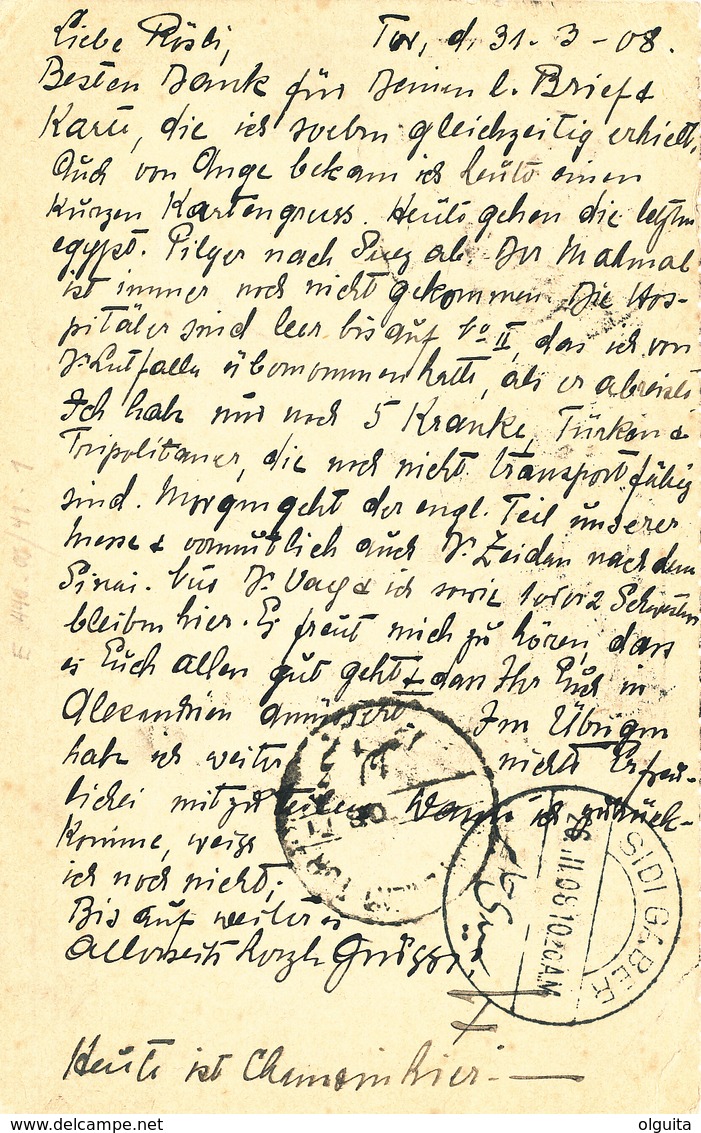 Liebe Rösli, Tor, d. 31. 3 - 08.
Besten Dank für Deinen l. Brief &
Karte, die ich soeben gleichzeitig erhielt.
Auch von Ange bekam ich heute einen
kurzen Kartengruss. Heute gehen die letzten
egypt. Pilger nach Suez ab. Der Mahmal
ist immer noch nicht gekommen. Die Hos-
pitäler sind leer bis auf No II, das ich von
Dr Lutfalla übernommen hatte, als er abreiste
Ich habe nur noch 5 Kranke, Türken &
Tripolitaner, die noch nicht transportfähig
sind. Morgen geht der engl. Teil unserer
Messe & vermutlich auch Dr. Zeidan nach dem
Sinai. Nur Dr. & ich sowie 1 oder 2 Schwestern
bleiben hier. Es freut mich zu hören, dass
es Euch allen gut geht & dass Ihr Euch in
Alexandrien amüsiert. Im Übrigen
habe ich weiter nichts Erfreu-
liches mitzuteilen. Wann ich zurück-
komme, weiss
ich noch nicht;
Bis auf weiteres
allerseits herzl. Grüsse
Heute ist Chamsin hier.
SIDI GABER
26. III. 08 10.20 A.M
E 440.05/41.1
olguita